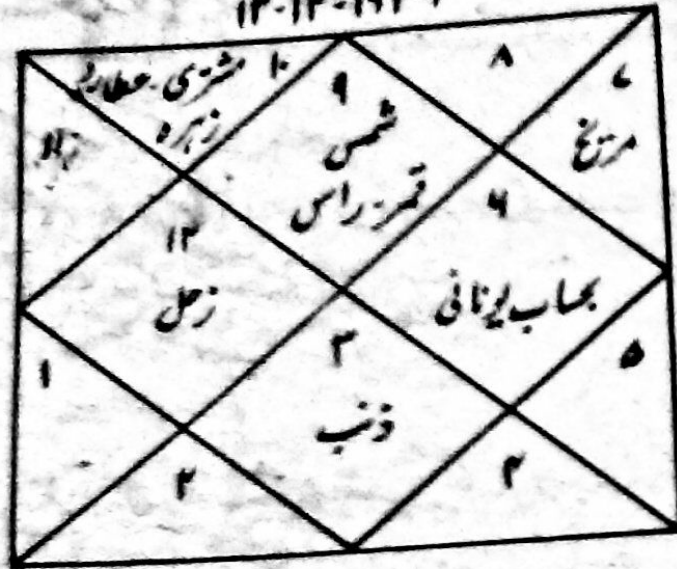 ۱۳-۱۲-۱۹۳۶
مشتری۔عطارد ۱۰
زہرہ
۹
شمس
قمر۔راس
۸
۷
مریخ
۱۲
زحل
۶
بحساب یونانی
۱
۳
ذنب
۵
۲
۴